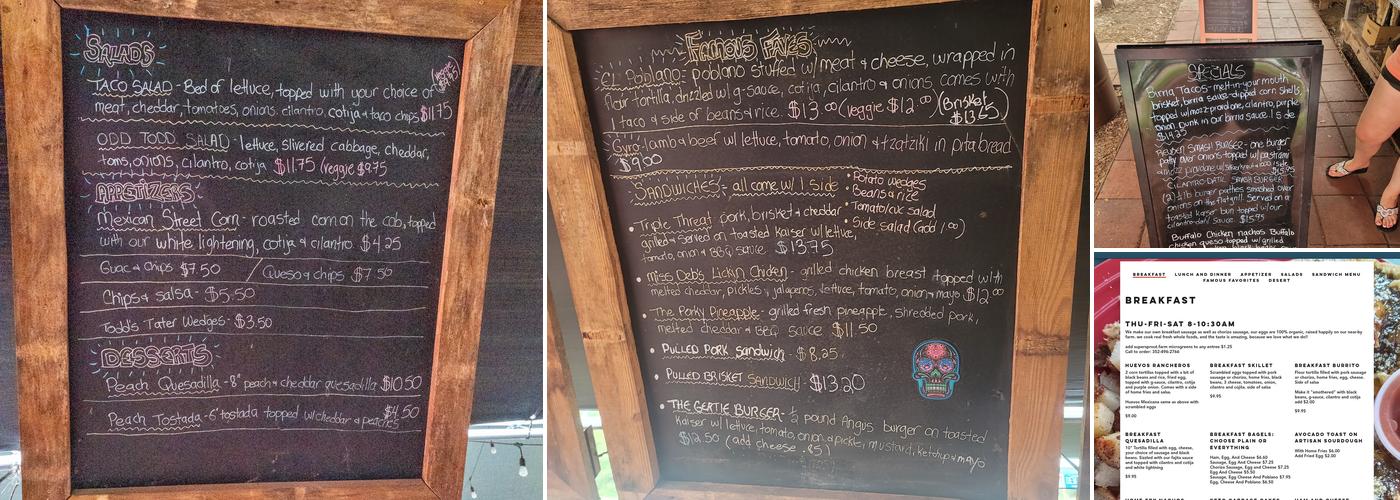 SALADS
TACO SALAD - Bed of lettuce, topped with your choice of (veggie $9.75)
meat, cheddar, tomatoes, onions, cilantro, cotija & taco chips $11.75
ODD TODD SALAD - lettuce, slivered cabbage, cheddar,
toms, onions, cilantro, cotija $11.75 (veggie $9.75
APPETIZERS
Mexican Street Corn - roasted corn on the cob, topped
with our white lightening, cotija & cilantro $4.25
Guac & Chips $7.50 / Queso & chips $7.50
Chips & salsa - $5.50
Todd's Tater Wedges - $3.50
DESSERTS
Peach Quesadilla - 8" peach & cheddar quesadilla $10.50
Peach Tostada - 6" tostada topped w/cheddar & peaches $4.50
FAMOUS FAVES
El Poblano - poblano stuffed w/ meat & cheese, wrapped in
flour tortilla, drizzled w/ g-sauce, cotija, cilantro & onions comes with
1 taco & side of beans & rice. $13.00 (veggie $12.00) (Brisket $13.65)
Gyro - lamb & beef w/ lettuce, tomato, onion & tzatziki in pita bread
$9.00
SANDWICHES: all come w/ 1 side
• Potato wedges
• Beans & rice
• Tomato/cuc salad
• Side salad (add 1.00)
• Triple Threat pork, brisket & cheddar
grilled & served on toasted kaiser w/ lettuce,
tomato, onion & BBQ sauce $13.75
• Miss Deb's Lickin Chicken - grilled chicken breast topped with
melted cheddar, pickles, jalapenos, lettuce, tomato, onion & mayo $12.00
• The Porky Pineapple - grilled fresh pineapple, shredded pork,
melted cheddar & BBQ sauce $11.50
• PULLED PORK Sandwich - $8.25
• PULLED BRISKET SANDWICH - $13.20
• THE GERTIE BURGER - ½ pound Angus burger on toasted
Kaiser w/ lettuce, tomato, onion & pickle, mustard, ketchup & mayo
$12.50 (add cheese .85)
SPECIALS
Birria Tacos - melt-in-your-mouth
brisket, birria sauce-dipped corn shells,
topped w/ mozz-provolone, cilantro, purple
onion. Dunk in our birria sauce. 1 side
$14.25
REUBEN SMASH BURGER - one burger
patty over onions topped w/ pastrami
CILANTRO-DATIL SMASH BURGER
(2) ¼ lb burger patties smashed over
onions on the flat grill. Served on a
toasted kaiser bun topped w/ our
cilantro-datil sauce $15.95
Buffalo Chicken nachos Buffalo
chicken queso topped w/ grilled
BREAKFAST LUNCH AND DINNER APPETIZER SALADS SANDWICH MENU
FAMOUS FAVORITES DESERT
BREAKFAST
THU-FRI-SAT 8-10:30AM
We make our own breakfast sausage as well as chorizo sausage, our eggs are 100% organic, raised happily on our near-by
farm. we cook real fresh whole foods, and the taste is amazing, because we love what we do!!
add supersprout.farm microgreens to any entree $1.25
Call to order: 352-496-2766
HUEVOS RANCHEROS
2 corn tortillas topped with a lot of
black beans and rice, fried egg,
topped with g-sauce, cilantro, cotija
and purple onion. Comes with a side
of home fries and salsa.
Huevos Mexicana same as above with
scrambled eggs
$9.00
BREAKFAST SKILLET
Scrambled eggs topped with pork
sausage or chorizo, home fries, black
beans, 3 cheese, tomatoes, onion,
cilantro and cojita, side of salsa
$9.95
BREAKFAST BURRITO
Flour tortilla filled with pork sausage
or chorizo, home fries, egg, cheese.
Side of salsa
Make it "smothered" with black
beans, g-sauce, cilantro and cotija
add $2.00
$9.95
BREAKFAST
QUESADILLA
10" Tortilla filled with egg, cheese,
your choice of sausage and black
beans. Sizzled with our fajita sauce
and topped with cilantro and cotija
and white lightning
$9.95
BREAKFAST BAGELS:
CHOOSE PLAIN OR
EVERYTHING
Ham, Egg, And Cheese $6.60
Sausage, Egg And Cheese $7.25
Chorizo Sausage, Egg and Cheese $7.25
Egg And Cheese $5.50
Sausage, Egg And Cheese And Poblano $7.95
Egg, Cheese And Poblano $6.50
AVOCADO TOAST ON
ARTISAN SOURDOUGH
With Home Fries $6.00
Add Fried Egg $2.00